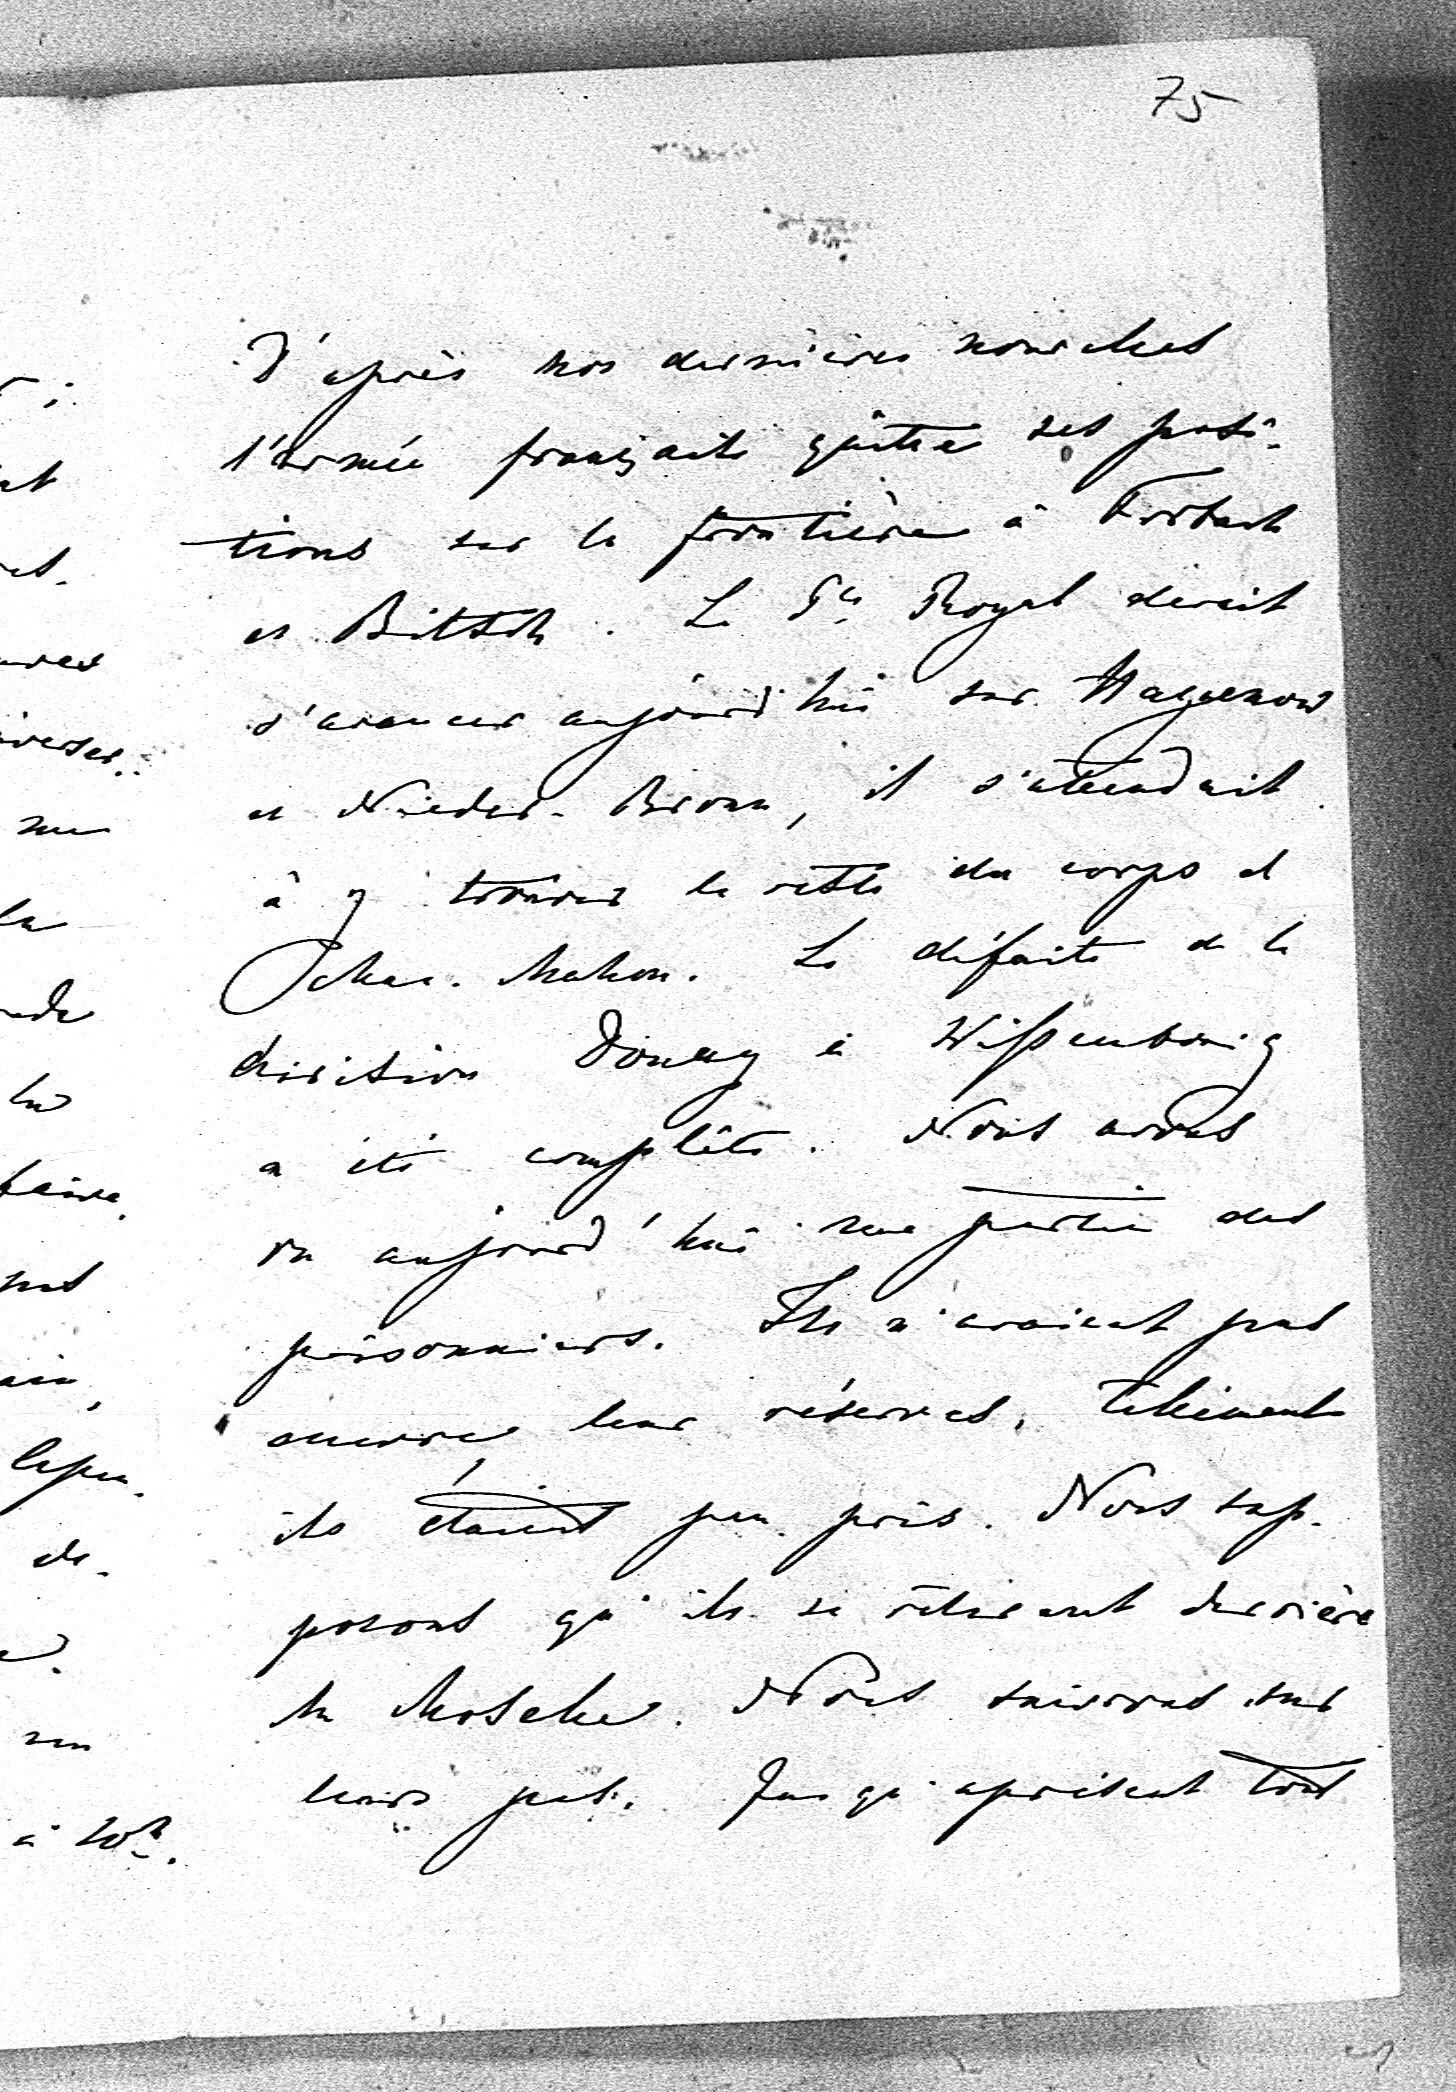 75
D'après nos dernières nouvelles
l'armée française quitte ses posi-
tions sur la frontière à Forbach
et Bitsch. Le Pce Royal devait
s'avancer aujourd'hui sur Haguenau
et Nieder-Bronn, il s'attendait
à y trouver le reste du corps d
Mac-Mahon. La défaite de la
division Douay à Wissembourg
a été complète. Nous avons
vu aujourd'hui une partie des
prisonniers. Ils n'avaient pas
encore leur réserves, tellement
ils étaient peu près. Nous sup-
posons qu'ils se retirent derrière
la Moselle. Nous suivrons sur
leurs pas. Jusqu'à présent tout
à